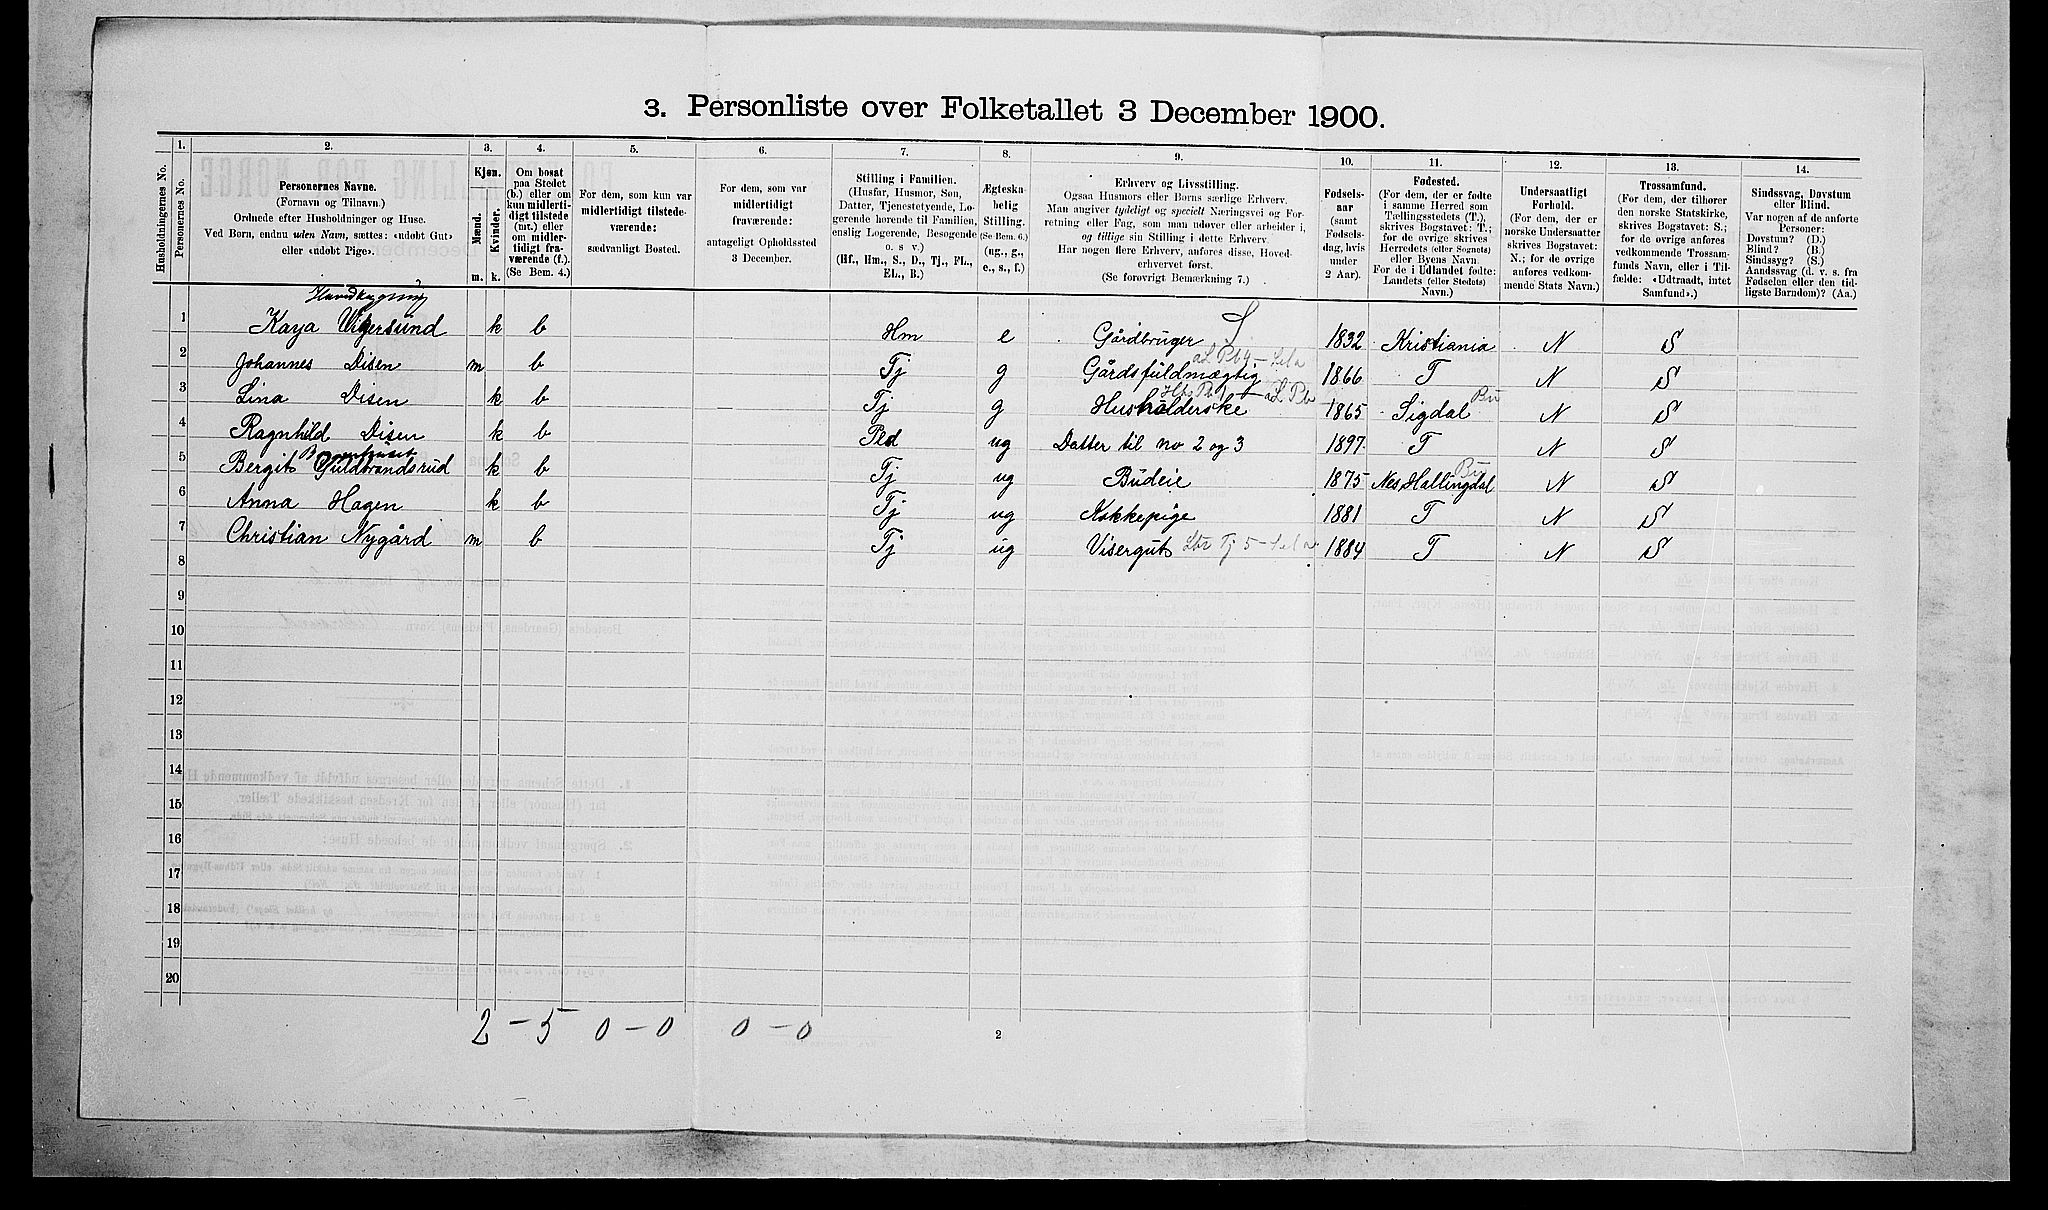 3. Personliste over Folketallet 3 December 1900.
Husholdningernes No.
1.
Personernes No.
2.
Personernes Navne.
(Fornavn og Tilnavn.)
Ordnede efter Husholdninger og Huse.
Ved Børn, endnu uden Navn, sættes: «udøbt Gut»
eller «udøbt Pige».
3.
Kjøn.
Mænd.
Kvinder.
m. k.
4.
Om bosat
paa Stedet
(b.) eller om
kun midlerti-
digt tilstede
(mt.) eller
om midler-
tidigt fra-
værende (f.).
(Se Bem. 4.)
5.
For dem, som kun var
midlertidigt tilstede-
værende:
sædvanligt Bosted.
6.
For dem, som var
midlertidigt
fraværende:
antageligt Opholdssted
3 December.
7.
Stilling i Familien.
(Husfar, Husmor, Søn,
Datter, Tjenestetyende, Lo-
gerende hørende til Familien,
enslig Logerende, Besøgende
o. s v.)
(Hf., Hm., S., D., Tj., FL.,
EL., B.)
8.
Ægteska-
belig
Stilling.
(Se Bem. 6.)
(ug., g.,
e., s., f.)
9.
Erhverv og Livsstilling.
Ogsaa Husmors eller Børns særlige Erhverv.
Man angiver tydeligt og specielt Næringsvei og For-
retning eller Fag, som man udøver eller arbeider i,
og tillige sin Stilling i dette Erhverv.
Har nogen flere Erhverv, anføres disse, Hoved-
erhvervet først.
(Se forøvrigt Bemærkning 7.)
10.
Fødsels-
aar
(samt
Fødsels-
dag, hvis
under
2 Aar).
11.
Fødested.
(For dem, der er fødte
i samme Herred som
Tællingsstedets (T.),
skrives Bogstavet: T.;
for de øvrige skrives
Herredets (eller Sognets)
eller Byens Navn.
For de i Udlandet fødte:
Landets (eller Stedets)
Navn.)
12.
Undersaatligt
Forhold.
(For dem, der er
norske Undersaatter
skrives Bogstavet:
N.; for de øvrige
anføres vedkom-
mende Stats Navn.)
13.
Trossamfund.
(For dem, der tilhører
den norske Statskirke,
skrives Bogstavet: S.;
for de øvrige anføres
vedkommende Trossam-
funds Navn, eller i Til-
fælde: «Udtraadt, intet
Samfund».)
14.
Sindssvag, Døvstum
eller Blind.
Var nogen af de anførte
Personer:
Døvstum? (D.)
Blind? (B.)
Sindssyg? (S.)
Aandssvag (d. v. s. fra
Fødselen eller den tid-
ligste Barndom)? (Aa.)
1 Kaya Vigersund k b Hm e Gårdbruger 1832 Kristiania N S
2 Johannes Disen m b Tj g Gårdsfuldmægtig 1866 T N S
3 Lina Disen k b Tj g Husholderske 1865 Sigdal Bu N S
4 Ragnhild Disen k b Pld ug Datter til no 2 og 3 1897 T N S
5 Bergit Guldbrandsrud k b Tj ug Budeie 1875 Nes Hallingdal Bu N S
6 Anna Hagen k b Tj ug Kokkepige 1881 T N S
7 Christian Nygård m b Tj ug Visergut 1884 T N S
8
9
10
11
12
13
14
15
16
17
18
19
20
2 – 5 0 – 0 0 – 0
2